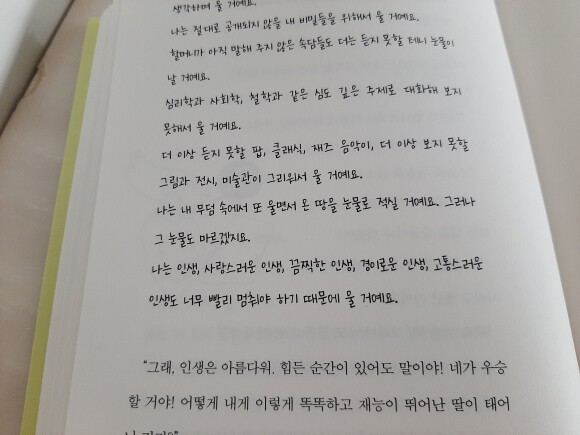 생각하며 울 거예요.
나는 절대로 공개되지 않을 내 비밀들을 위해서 울 거예요.
할머니가 아직 말해 주지 않은 속담들도 더는 듣지 못할 테니 눈물이
날 거예요.
심리학과 사회학, 철학과 같은 심도 깊은 주제로 대화해 보지
못해서 울 거예요.
더 이상 듣지 못할 팝, 클래식, 재즈 음악이, 더 이상 보지 못할
그림과 전시, 미술관이 그리워서 울 거예요.
나는 내 무덤 속에서 또 울면서 온 땅을 눈물로 적실 거예요. 그러나
그 눈물도 마르겠지요.
나는 인생, 사랑스러운 인생, 끔찍한 인생, 경이로운 인생, 고통스러운
인생도 너무 빨리 멈춰야 하기 때문에 울 거예요.
“그래, 인생은 아름다워. 힘든 순간이 있어도 말이야! 네가 우승
할 거야! 어떻게 내게 이렇게 똑똑하고 재능이 뛰어난 딸이 태어